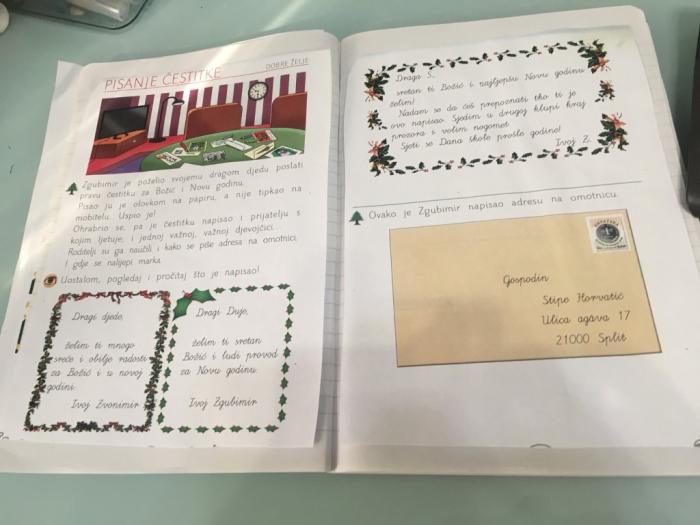 PISANJE ČESTITKE
DOBRE ŽELJE
Zgubimir je poželio svojemu dragom djedu poslati
pravu čestitku za Božić i Novu godinu.
Pisao ju je olovkom na papiru, a nije tipkao na
mobitelu. Uspio je!
Ohrabrio se, pa je čestitku napisao i prijatelju s
kojim ljetuje, i jednoj važnoj, važnoj djevojčici...
Roditelji su ga naučili i kako se piše adresa na omotnici.
I gdje se nalijepi marka.
Uostalom, pogledaj i pročitaj što je napisao!
Dragi djede,
želim ti mnogo
sreće i obilje radosti
za Božić i u novoj
godini.
Tvoj Zvonimir
Dragi Duje,
želim ti sretan
Božić i ludi provod
za Novu godinu.
Tvoj Zgubimir
Draga S.,
sretan ti Božić i najljepšu Novu godinu
želim!
Nadam se da ćeš prepoznati tko ti je
ovo napisao. Sjedim u drugoj klupi kraj
prozora i volim nogomet.
Sjeti se Dana škole prošle godine!
Tvoj Z.
Ovako je Zgubimir napisao adresu na omotnicu.
Gospodin
Stipe Horvatić
Ulica agava 17
21000 Split